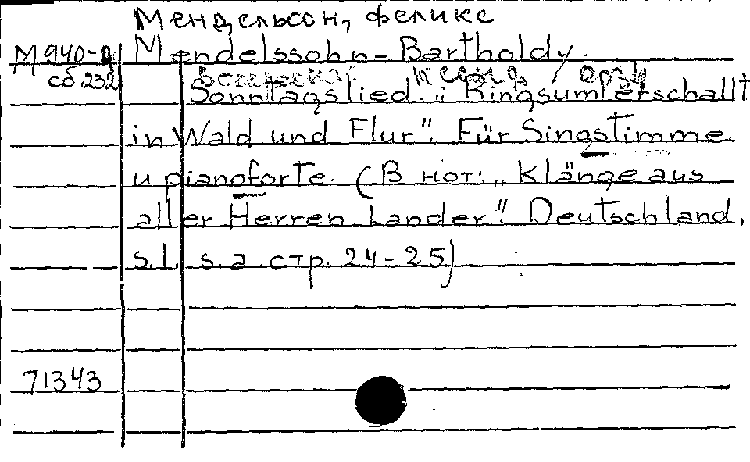 Мендельсон, Феликс
М 940-Д Mendelssohn-Bartholdy.
сб 232
Sonntagslied „: Ringsumlerschallt
in Wald und Flur". Für Singstimme
u pianoforte. (В нот: „Klänge aus
aller Herren Lander." Deutschland,
s.l. s.a. стр. 24-25)
71343